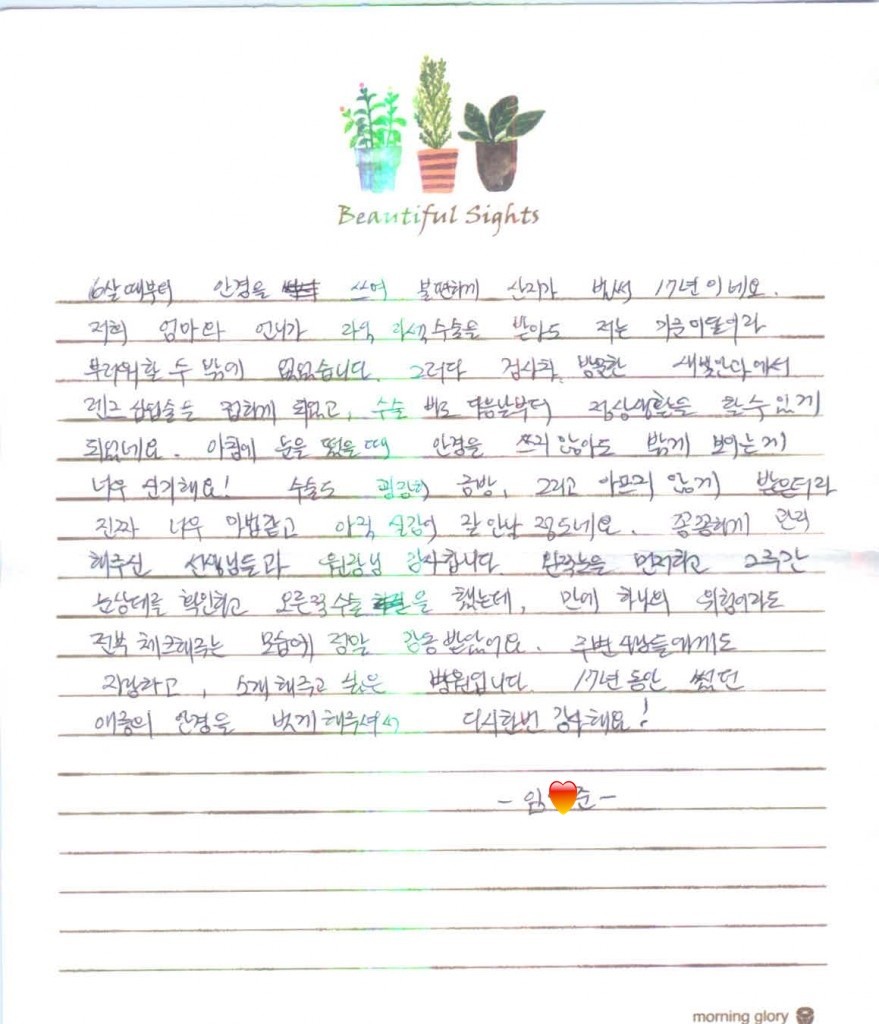 Beautiful Sights
6살때부터 안경을 쓰며 불편하게 산지가 벌써 17년이네요.
저희 엄마와 언니가 라식 라섹수술을 받아도 저는 기준미달이라
부러워할 수 밖에 없었습니다. 그러다 검사차 방문한 새빛안과에서
렌즈삽입술을 접하게 되었고, 수술 바로 다음날부터 정상생활을 할수있게
되었네요. 아침에 눈을 떴을때 안경을 쓰지 않아도 밝게 보이는게
너무 신기해요! 수술도 굉장히 금방, 그리고 아프지 않게 받은터라
진짜 너무 마법같고 아직 실감이 잘 안날 정도네요. 꼼꼼하게 관리
해주신 선생님들과 원장님 감사합니다. 왼쪽눈을 먼저하고 2주간
눈상태를 확인하고 오른쪽수술을 했는데, 만에 하나의 위험이라도
전부 체크해주는 모습에 정말 감동받았어요. 주변 사람들에게도
자랑하고, 소개해주고 싶은 병원입니다. 17년동안 썼던
애증의 안경을 벗게해주셔서 다시한번 감사해요!
- 임 준 -
morning glory